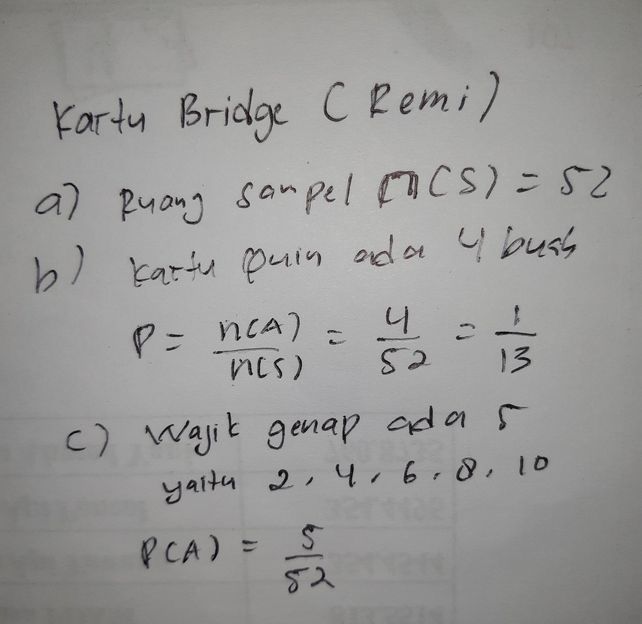 Kartu Bridge (Remi)
a) Ruang sampel n(S) = 52
b) Kartu Quin ada 4 buah
P = n(A)/n(S) = 4/52 = 1/13
c) Wajik genap ada 5
yaitu 2, 4, 6, 8, 10
P(A) = 5/52